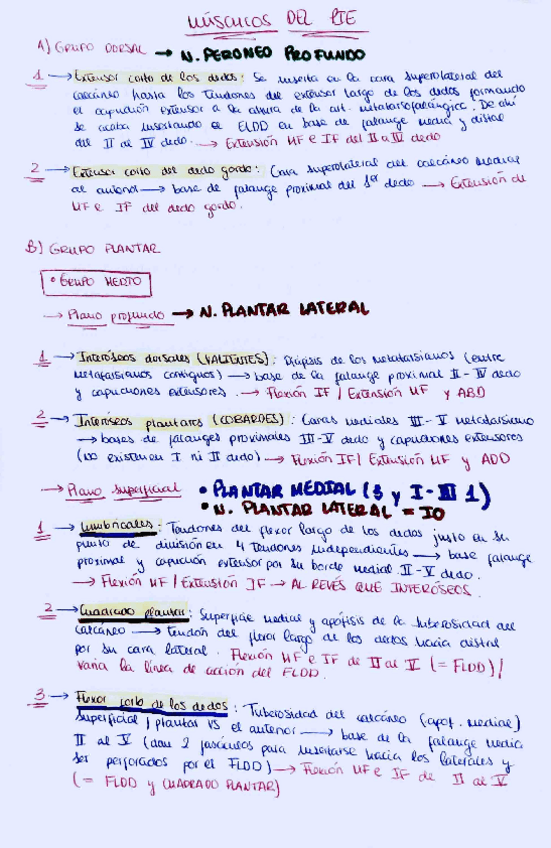 MÚSCULOS DEL PIE
A) GRUPO DORSAL → N. PERONEO PROFUNDO
1 → Extensor corto de los dedos: Se inserta en la cara superolateral del
calcáneo hasta los tendones del extensor largo de los dedos formando
el capuchón extensor a la altura de la art. metatarsofalángica. De ahí
se acaba insertando el ELDD en base de falange media y distal
del II al IV dedo. → Extensión MF e IF del II a IV dedo
2 → Extensor corto del dedo gordo: Cara superolateral del calcáneo medial
al anterior → base de falange proximal del 1er dedo → Extensión de
MF e IF del dedo gordo.
B) GRUPO PLANTAR
• GRUPO MEDIO
→ Plano profundo → N. PLANTAR LATERAL
1 → Interóseos dorsales (VALIENTES): Diáfisis de los metatarsianos (entre
metatarsianos contiguos) → base de la falange proximal II-IV dedo
y capuchones extensores. → Flexión IF / Extensión MF y ABD
2 → Interóseos plantares (COBARDES): Caras mediales III-V metatarsiano
→ bases de falanges proximales III-V dedo y capuchones extensores
(no existen en I ni II dedo) → Flexión IF / Extensión MF y ADD
→ Plano superficial • PLANTAR MEDIAL (3 y I-III 1)
• N. PLANTAR LATERAL = IO
1 → Lumbricales: Tendones del flexor largo de los dedos justo en su
punto de división en 4 tendones independientes → base falange
proximal y capuchón extensor por su borde medial II-V dedo.
→ Flexión MF / Extensión IF → AL REVÉS QUE INTERÓSEOS.
2 → Cuadrado plantar: Superficie medial y apófisis de la tuberosidad del
calcáneo → tendón del flexor largo de los dedos hacia distal
por su cara lateral. Flexión MF e IF de II al V (= FLDD) /
Varia la línea de acción del FLDD.
3 → Flexor corto de los dedos: Tuberosidad del calcáneo (apof. medial)
superficial / plantar VS el anterior → base de la falange media
II al V (dan 2 fascículos para insertarse hacia los laterales y
ser perforados por el FLDD) → Flexión MF e IF de II al V
(= FLDD y CUADRADO PLANTAR)